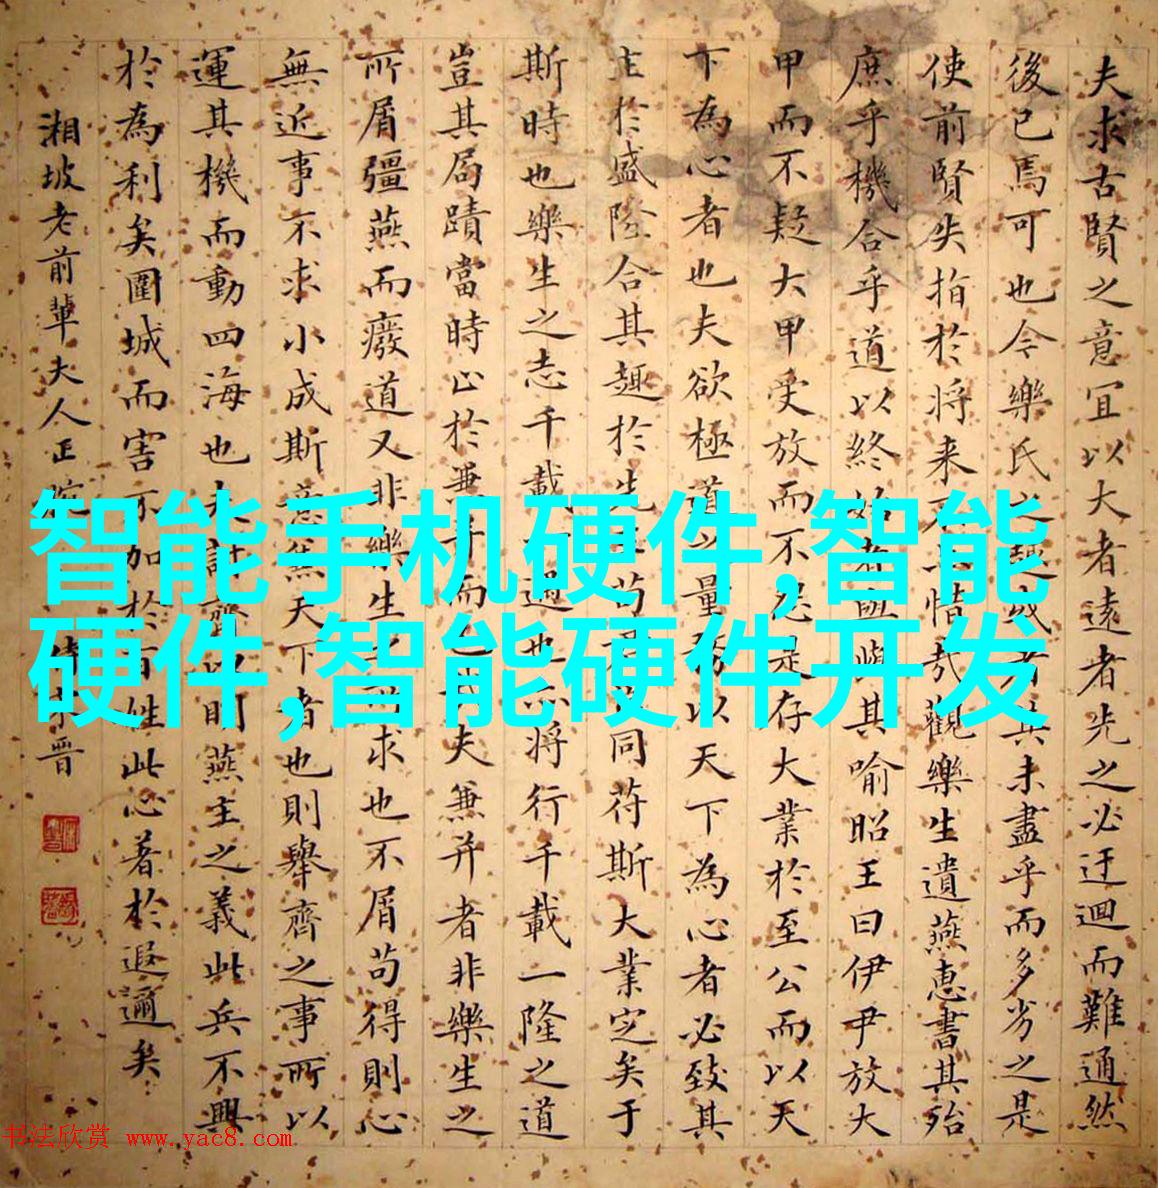 夫求古賢之意宜以大者遠者先之必迂迴而難通然
後已焉可也今樂氏之趣或者其未盡乎而多劣之是
使前賢失指於将来不惜哉觀樂生遺燕惠書其殆
庶乎機合乎道以終始者與其喻昭王曰伊尹放大
甲而不疑大甲受放而不怨是存大業於至公而以天
下為心者也夫欲極道之量務以天下為心者必致其
主於盛隆合其趣於先王苟君同苻斯大業定矣于
斯時也樂生之志千載一遇也亦将行千載一隆之道
豈其局蹟當時止於兼并而已哉夫兼并者非樂生之
所屑彊燕而廢道又非樂生之所求也不屑苟得則心
無近事不求小成斯意兼天下者也則舉齊之事所以
運其機而動四海也夫討齊以明燕主之義此兵不興
於為利矣圍城而害不加於百姓此心著於遐邇矣
湘坡老前輩夫人正腕
晋
智能手机硬件,智能
硬件,智能硬件开发
书法欣赏 www.yac8.com